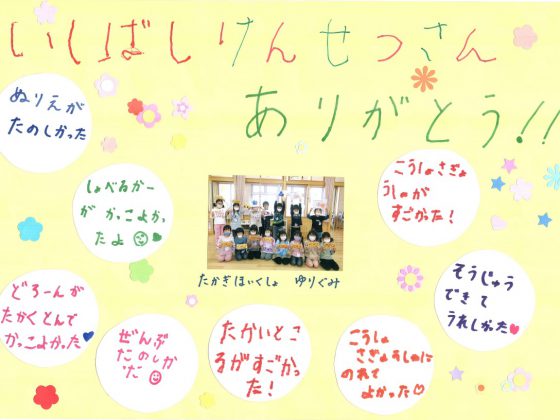 いしばしけんせつさん
ありがとう!!
ぬりえが
たのしかった
しょべるかー
が かっこよかっ
たよ
こうしょさぎょ
うしゃが
すごかった!
たかぎほいくしょ ゆりぐみ
そうじゅう
できて
うれしかった
どろーんが
たかくとんで
かっこよかった
ぜんぶ
たのしか
た
たかいとこ
ろがすごかっ
た!
こうしょ
さぎょうしゃに
のれて
よかった